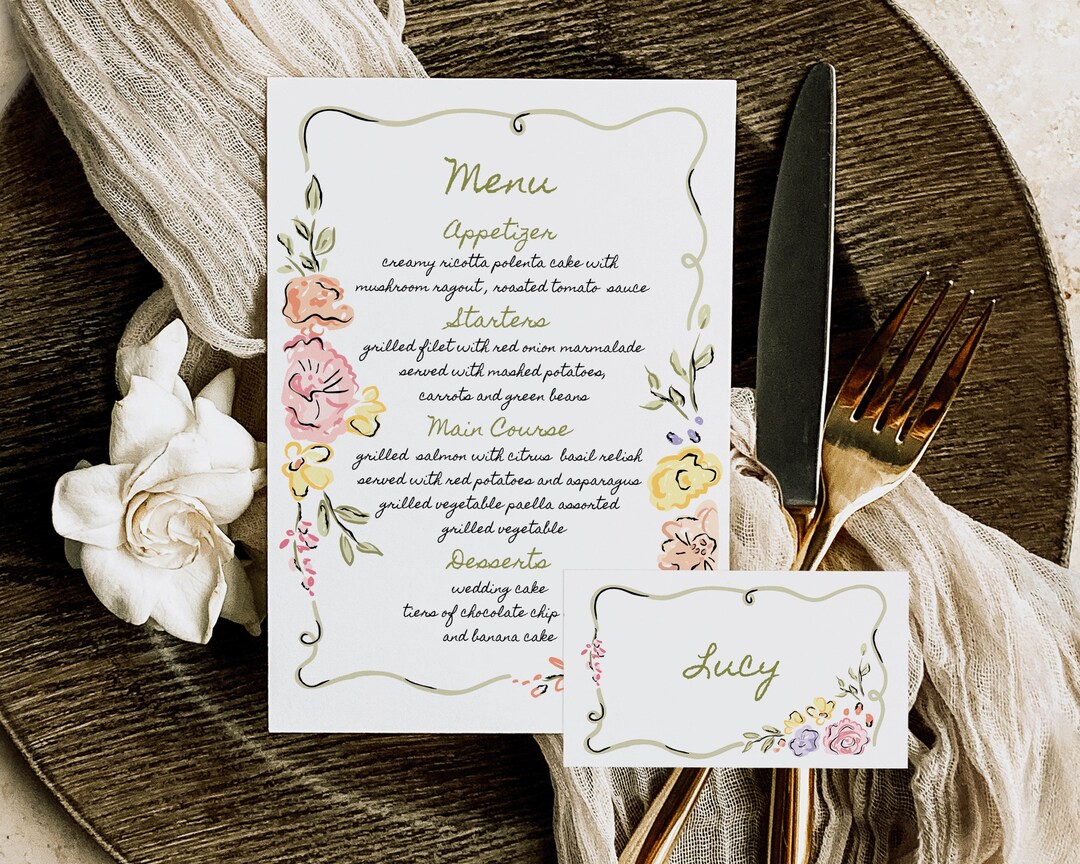 Menu
Appetizer
creamy ricotta polenta cake with
mushroom ragout, roasted tomato sauce
Starters
grilled filet with red onion marmalade
served with mashed potatoes,
carrots and green beans
Main Course
grilled salmon with citrus basil relish
served with red potatoes and asparagus
grilled vegetable paella assorted
grilled vegetable
Desserts
wedding cake
tiers of chocolate chip
and banana cake
Lucy